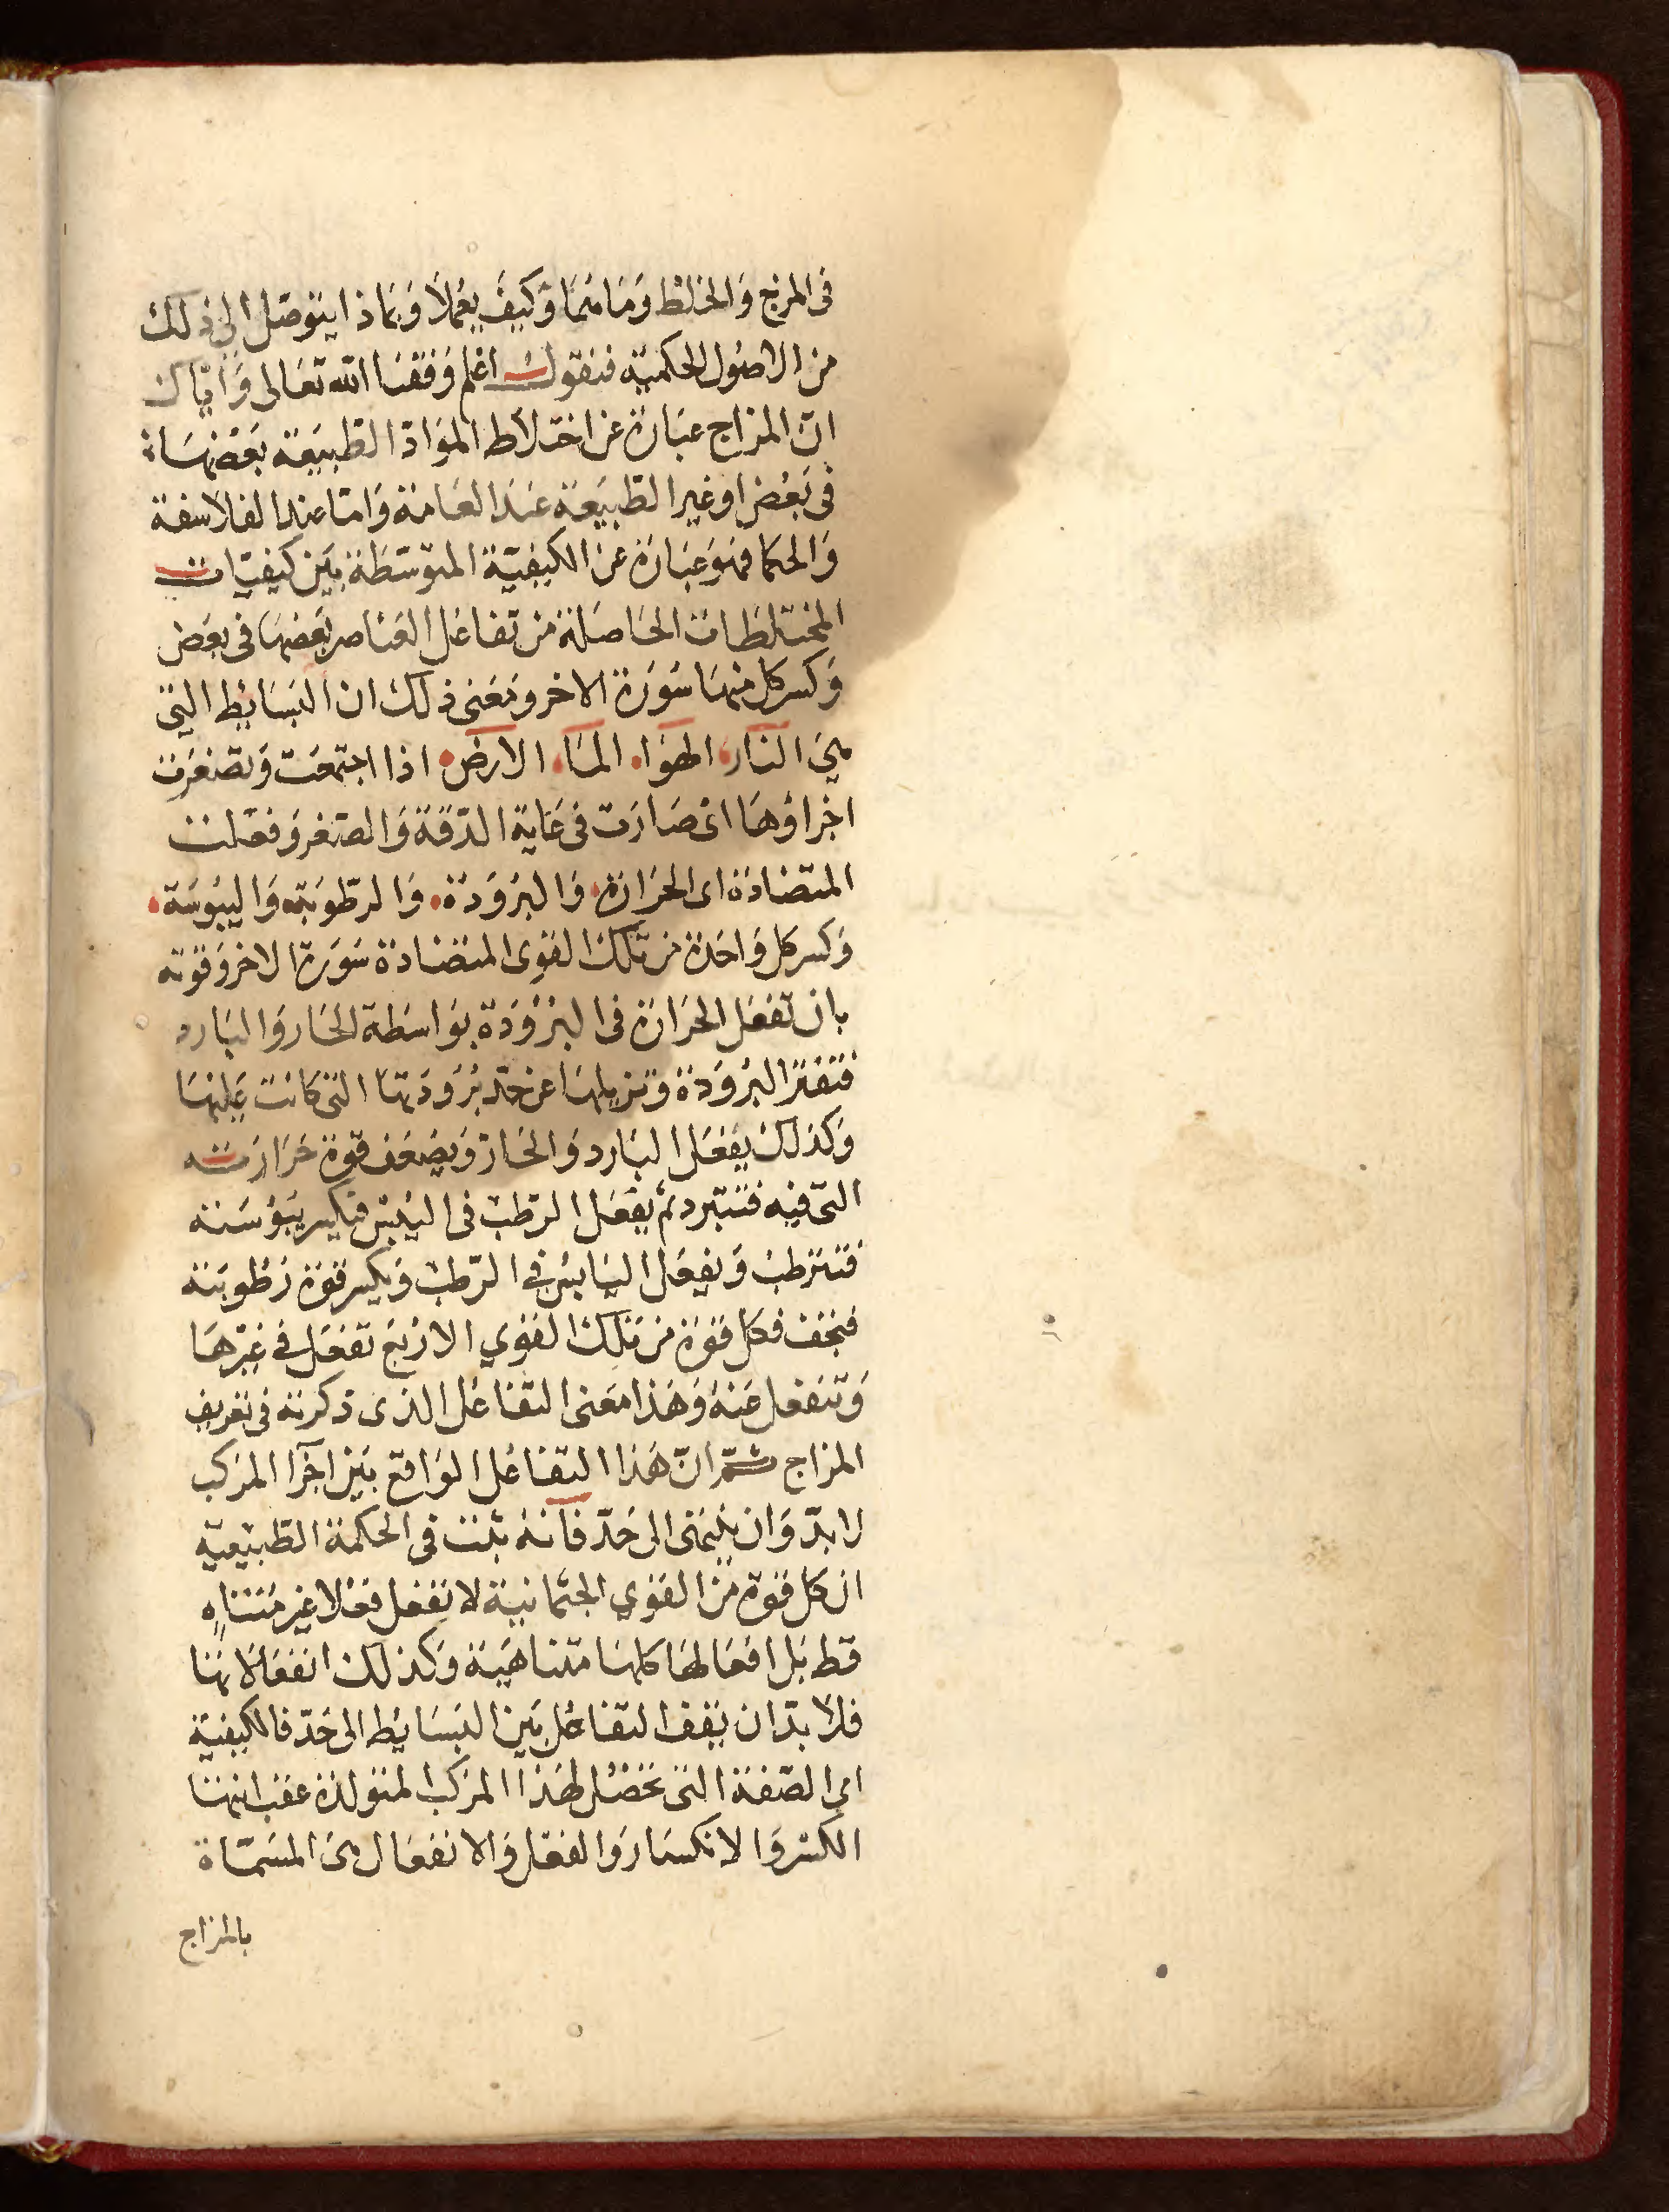 فى المزج والخلط وما هما وكيف يعملا وبماذا يتوصل الى ذلك
من الاصول الحكمية فنقول اعلم وفقنا الله تعالى واياك
ان المزاج عبارة عن اختلاط المواد الطبيعة بعضها
فى بعض او غير الطبيعة عند العامة واما عند الفلاسفة
والحكما فهو عبارة عن الكيفية المتوسطة بين كيفيات
المختلطات الحاصلة من تفاعل العناصر بعضها فى بعض
وكسر كل منها سورة الاخر ومعنى ذلك ان البسايط التى
هى النار، الهوا. الما. الارض. اذا اجتمعت وتصغرت
اجزاؤها اى صارت فى غاية الدقة والصغر وفعلت
المتضادة اى الحرارة. والبرودة. والرطوبة واليبوسة.
وكسر كل واحدة من تلك القوى المتضادة سورة الاخر وقوته
بان تفعل الحرارة فى البرودة بواسطة الحار والبارد
فتفتر البرودة وتزيلها عن حد برودتها التى كانت عليها
وكذلك يفعل البارد والحار ويضعف قوة حرارته
التى فيه فتتبرد ثم يفعل الرطب فى اليبس فيكسر يبوسته
فتترطب ويفعل اليابس فى الرطب ويكسر قوة رطوبته
فيجف فكل قوة من تلك القوي الاربع تفعل فى غيرها
وتنفعل عنه وهذا معنى التفاعل الذى ذكرته فى تعريف
المزاج ثم ان هذا التفاعل الواقع بين اجزا المركب
لا بد وان ينتهى الى حد فانه ثبت فى الحكمة الطبيعية
ان كل قوة من القوي الجثمانية لا تفعل فعلا غير متناه
قط بل افعالها كلها متناهية وكذلك انفعالاتها
فلا بد ان يقف التفاعل بين البسايط الى حد فالكيفية
اى الصفة التى تحصل لهذا المركب المتولدة عقب انتها
الكسر والانكسار والفعل والانفعال هى المسماة
بالمزاج